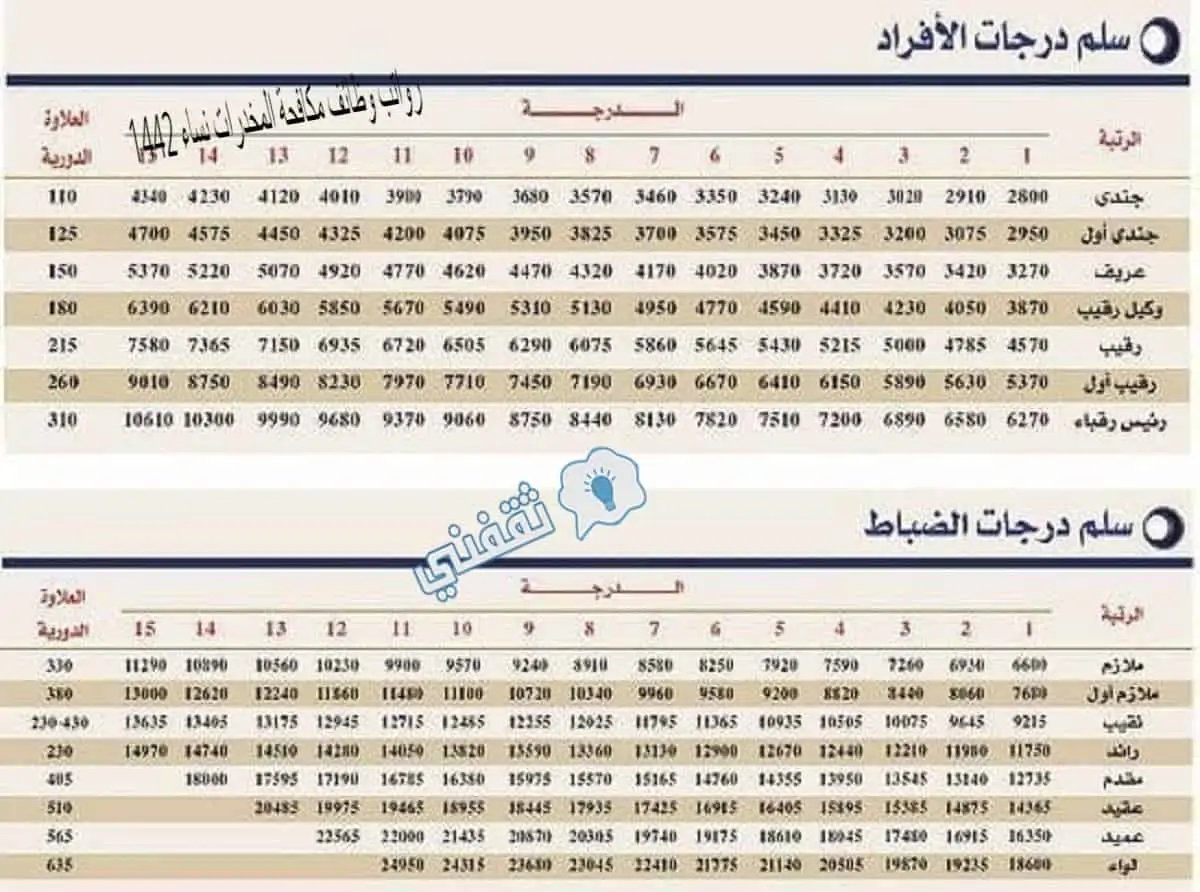 سلم درجات الأفراد
رواتب وظائف مكافحة المخدرات نساء 1442
الرتبة الـدرجـــة العلاوة الدورية
1 2 3 4 5 6 7 8 9 10 11 12 13 14 15
جندي 2800 2910 3020 3130 3240 3350 3460 3570 3680 3790 3900 4010 4120 4230 4340 110
جندي أول 2950 3075 3200 3325 3450 3575 3700 3825 3950 4075 4200 4325 4450 4575 4700 125
عريف 3270 3420 3570 3720 3870 4020 4170 4320 4470 4620 4770 4920 5070 5220 5370 150
وكيل رقيب 3870 4050 4230 4410 4590 4770 4950 5130 5310 5490 5670 5850 6030 6210 6390 180
رقيب 4570 4785 5000 5215 5430 5645 5860 6075 6290 6505 6720 6935 7150 7365 7580 215
رقيب أول 5370 5630 5890 6150 6410 6670 6930 7190 7450 7710 7970 8230 8490 8750 9010 260
رئيس رقباء 6270 6580 6890 7200 7510 7820 8130 8440 8750 9060 9370 9680 9990 10300 10610 310
ثقفني
سلم درجات الضباط
الرتبة الـدرجـــة العلاوة الدورية
1 2 3 4 5 6 7 8 9 10 11 12 13 14 15
ملازم 6600 6930 7260 7590 7920 8250 8580 8910 9240 9570 9900 10230 10560 10890 11290 330
ملازم أول 7680 8060 8440 8820 9200 9580 9960 10340 10720 11100 11480 11860 12240 12620 13000 380
نقيب 9215 9645 10075 10505 10935 11365 11795 12025 12255 12485 12715 12945 13175 13405 13635 230-430
رائد 11750 11980 12210 12440 12670 12900 13130 13360 13590 13820 14050 14280 14510 14740 14970 230
مقدم 12735 13140 13545 13950 14355 14760 15165 15570 15975 16380 16785 17190 17595 18000 405
عقيد 14365 14875 15385 15895 16405 16915 17425 17935 18445 18955 19465 19975 20485 510
عميد 16350 16915 17480 18045 18610 19175 19740 20305 20870 21435 22000 22565 565
لواء 18600 19235 19870 20505 21140 21775 22410 23045 23680 24315 24950 635